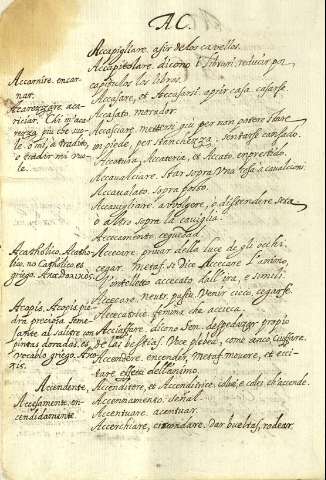 A.C.
Accapigliare. asir de los cavellos.
Accapitolare. dicono i librari. reducir por
capitulos los libros.
Accasare, et Accasarsi. aprir casa. casarse.
Accasato. morador.
Accasciare. mettersi giù per non potere stare
in piede, per stanchezza. sentarse cansado.
Accatura, Accateria, et Accato. enprestido.
Accavalciare. star sopra una cosa à cavalcioni.
Accavalato. sopra posto.
Accavigliare. avolgere, o distendere seta
o altro sopra la caviglia.
Accecamento. ceguedad.
Accecare. privar della luce de gli occhi.
cegar. metaf. si dice Accecare l'animo,
intelletto accecato dall'ira, e simili.
Accecare. neutr. pass. Venir cieco. cegarse.
Accecatrice. femina che acceca.
Acceffare. dicono Sen. despedazar proprio
de las bestias. Voce plebea, come anco, Ciuffare.
Accendere. encender, Metaf. movere, et ecci-
tare affetti dell'animo.
Accenditore, et Accenditrice. colui, e colei ch'accende.
Accennamento. señal.
Accentuare. acentuar.
Accerchiare, circondare. dar bueltas, rodear.
Accarnire. encar-
nar.
Accarezzare. aca-
riciar. Chi m'aca-
rezza più che suo-
le. o m'hà tradito,
o tradir mi vuo-
le.
Acatholico. Acatto-
lico. no Catholico. es
griego.
Acopis. Acopis. pie-
dra preciosa seme-
jante al salitre con
pintas doradas. es
vocablo griego.
Accendente.
Accesamente. en-
cendidamente.